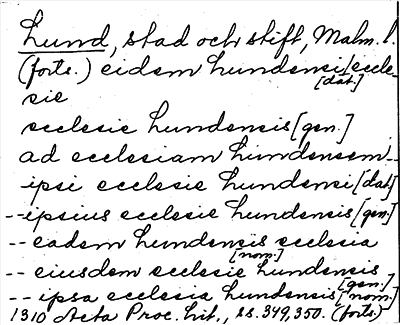 Lund, stad och stift, Malm. l.
(forts.) eidem Lundensi eccle-
[dat.]
sie
ecclesie Lundensis [gen.]
ad ecclesiam Lundensem --
ipsi ecclesie Lundensi [dat]
-- ipsius ecclesie Lundensis [gen.]
-- eadem Lundensis ecclesia
[nom.]
-- eiusdem ecclesie Lundensis
[gen.]
-- ipsa ecclesia Lundensis [nom.]
1310 Acta Proc. Lit., ss. 349, 350. (forts.)